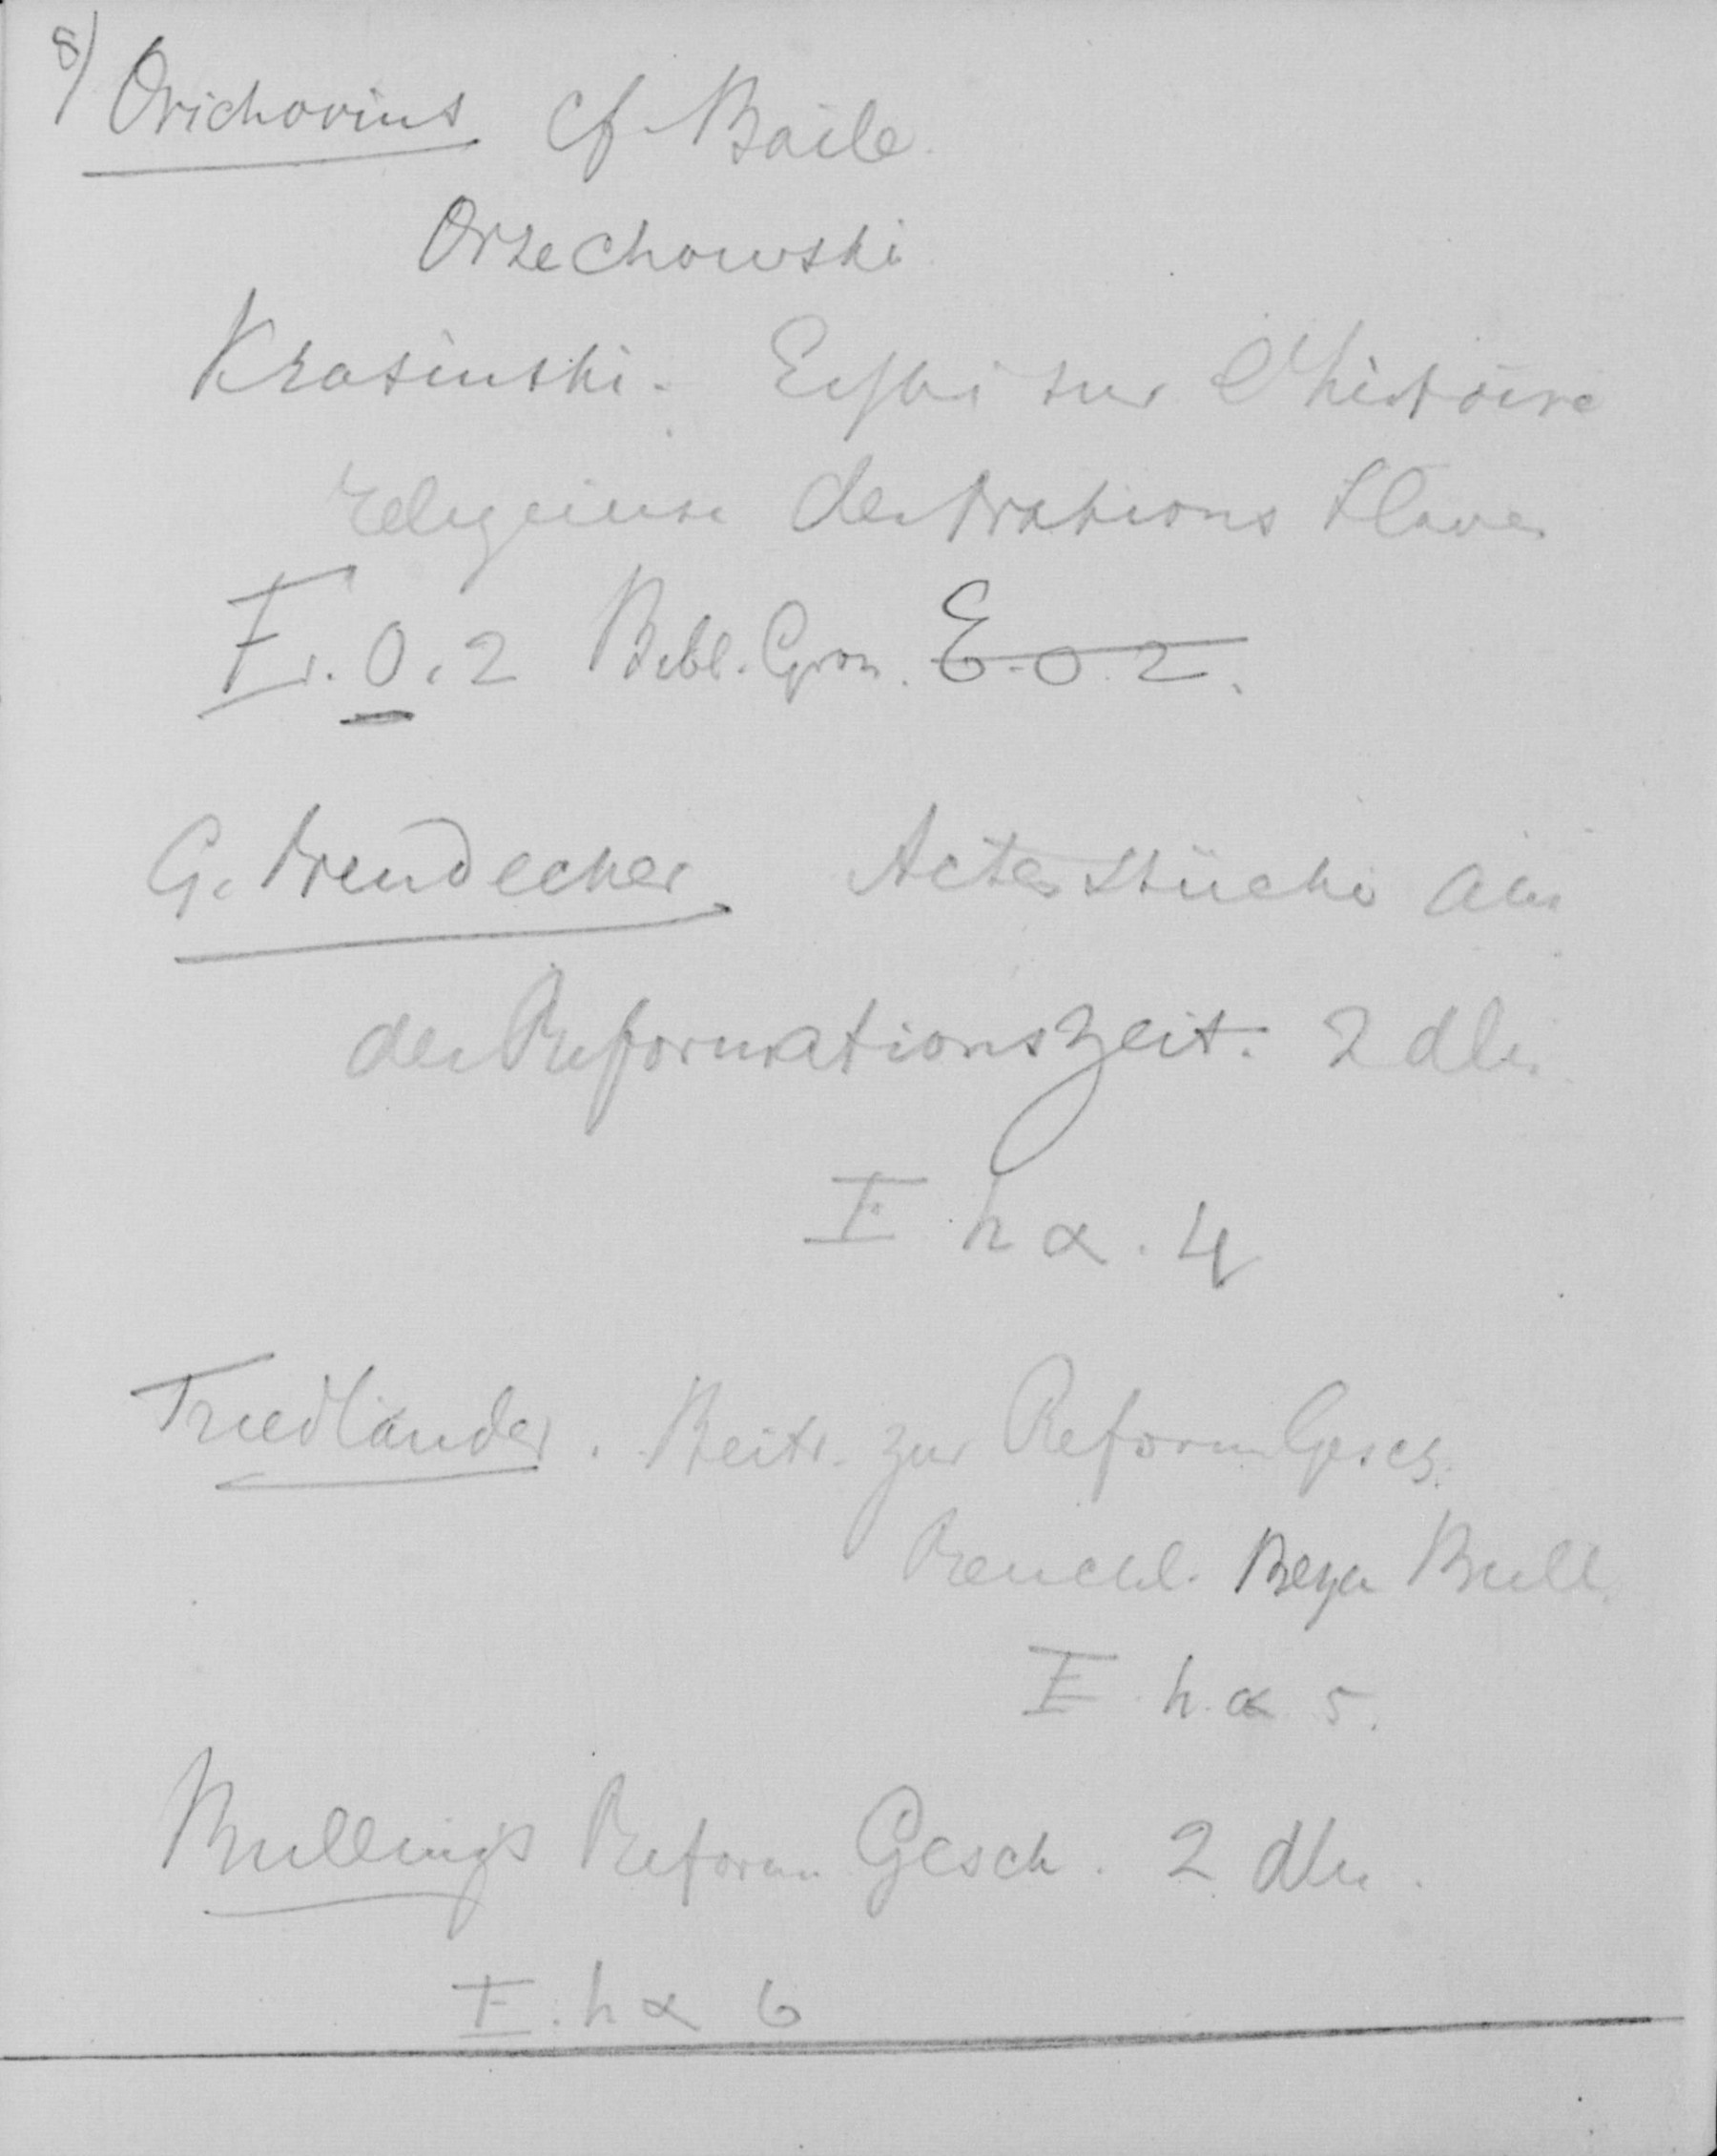 8) Orichovius cf. Baile.
Orzechowski
Krasinski. Essai sur l'histoire
religieuse des Nations Slaves
F. O. 2 Bibl. Gron. E. O. 2.
G. Neudecker Actenstücke aus
der Reformationszeit. 2 dln.
F h α. 4
Friedländer. Beitr. zur Reform Gesch.
Reuchl. Beza Bull.
F h. α 5.
Bulling's Reform Gesch. 2 dln.
F. h α 6